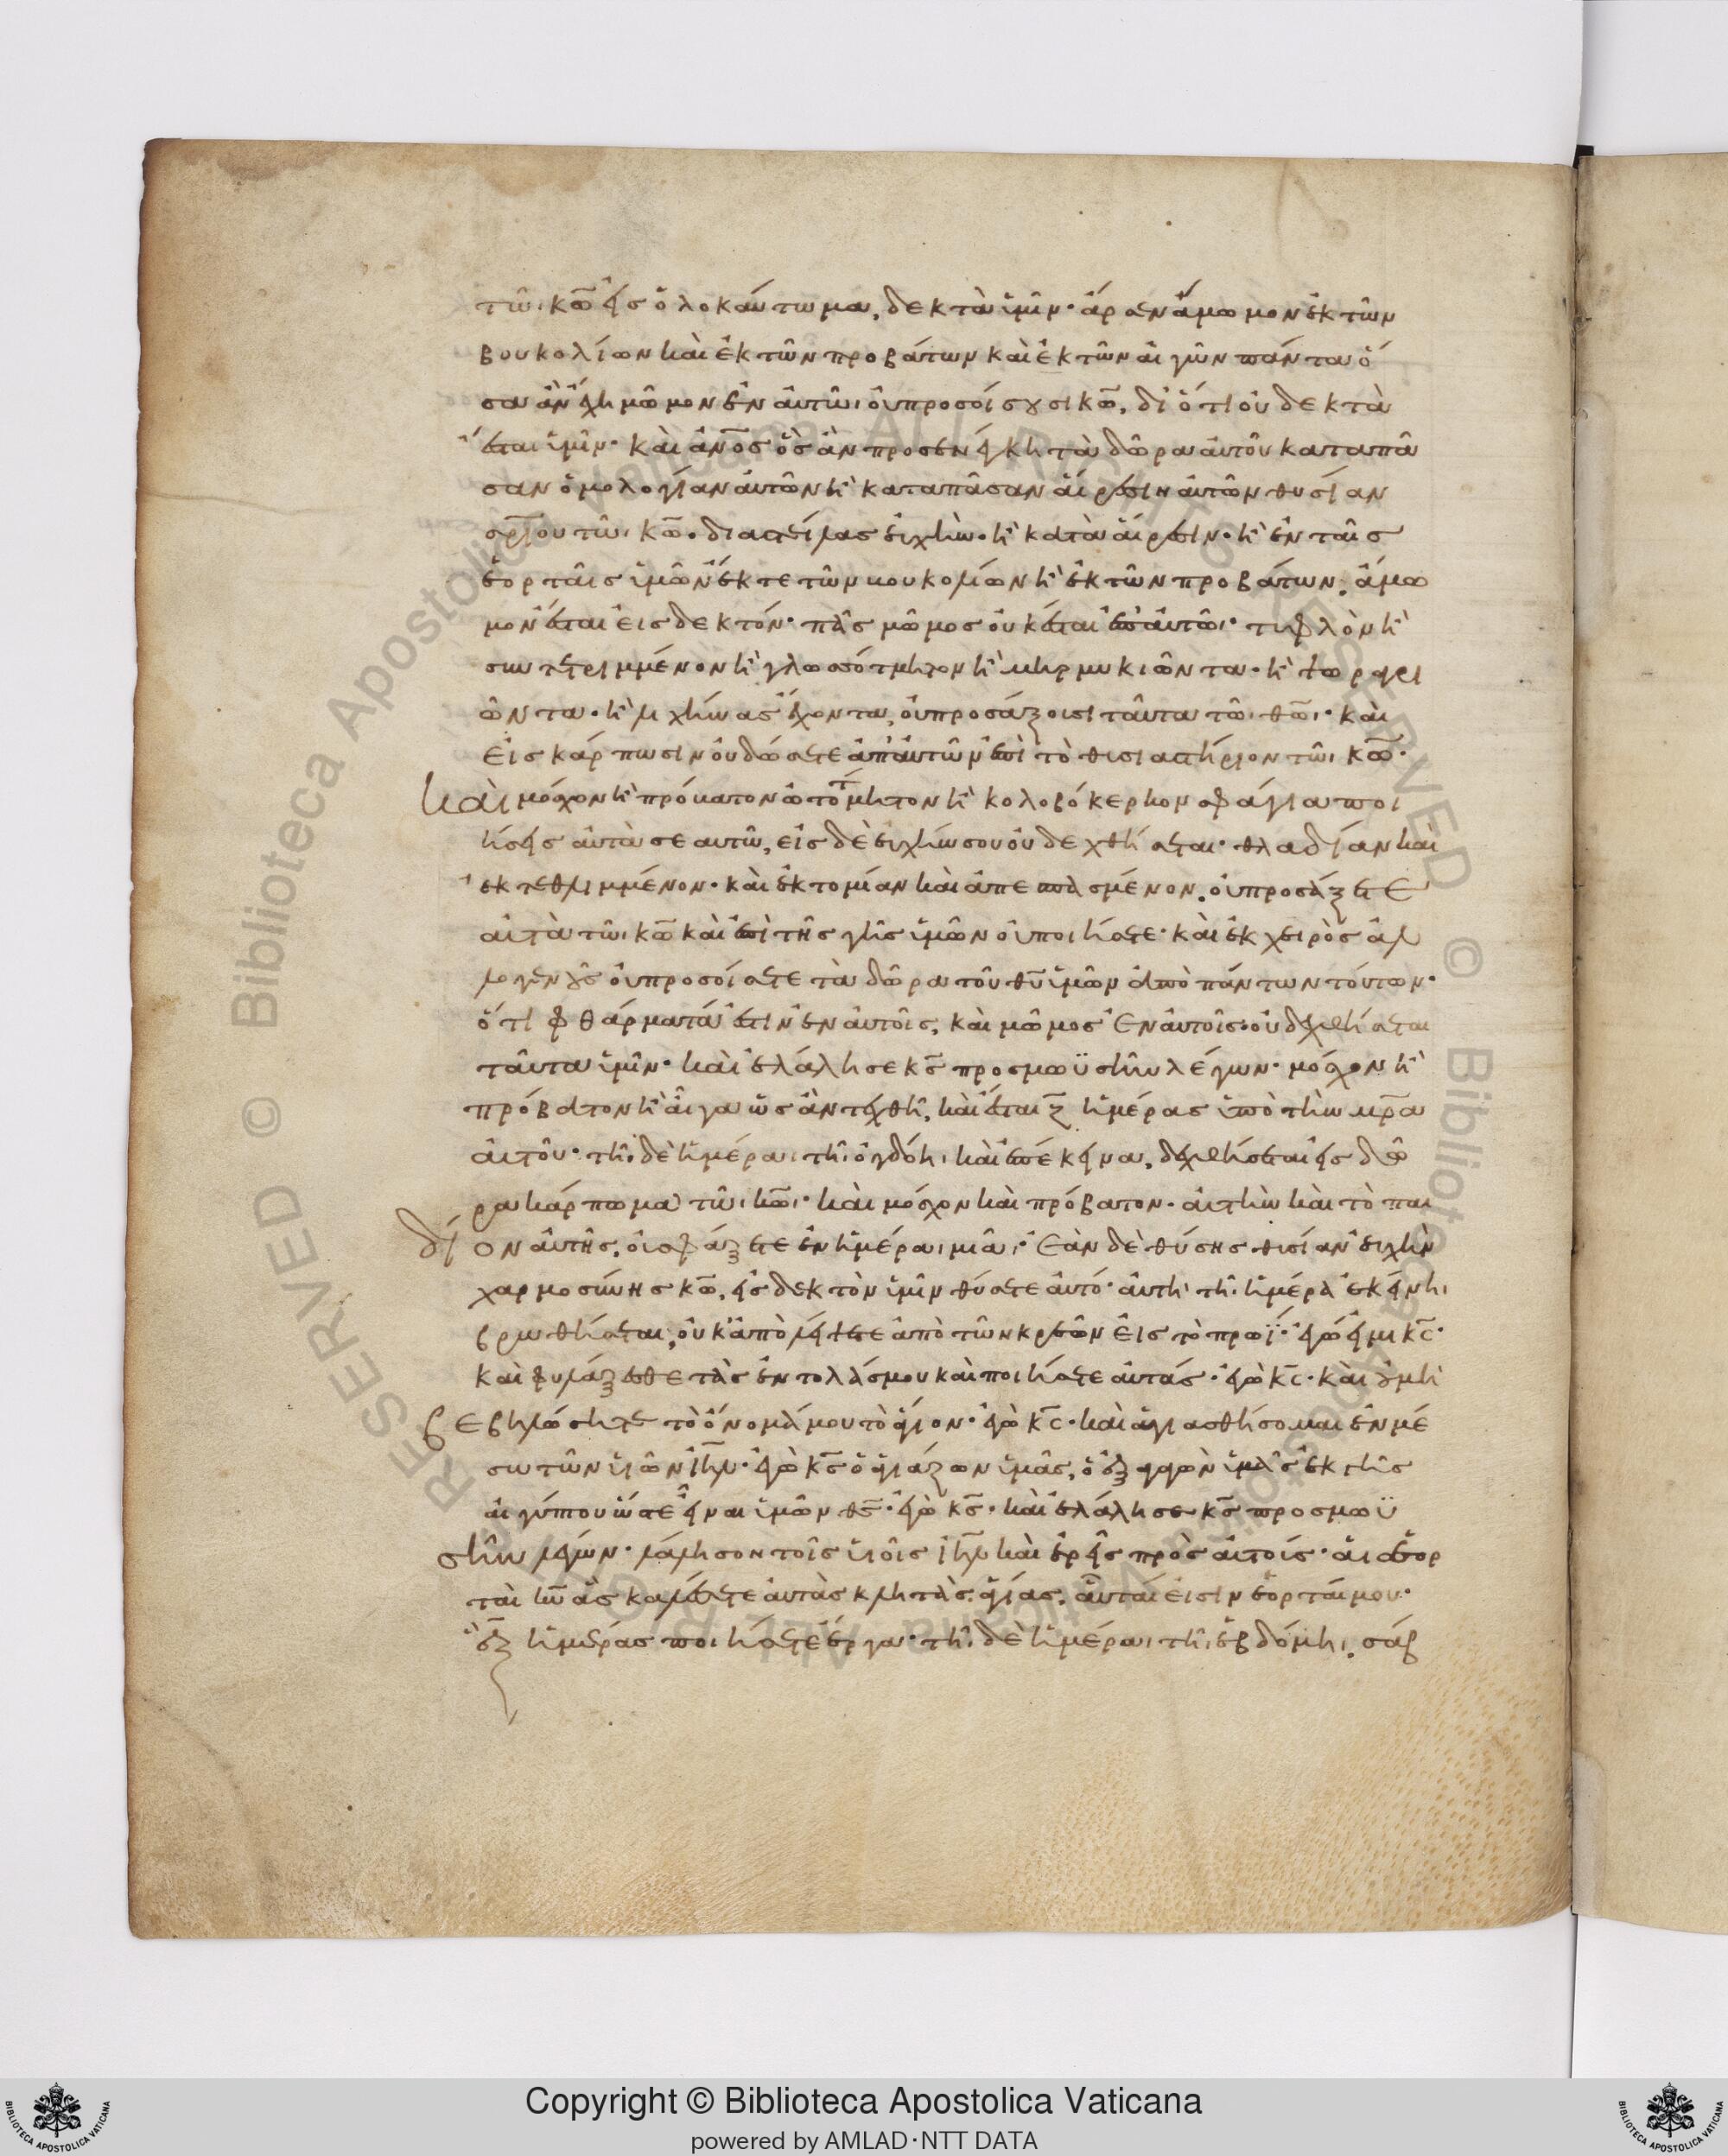 τῶι κω̅ εἰς ὁλοκαύτωμα, δεκτὰ ὑμῖν· ἄρσεν ἄμωμον ἐκ τῶν
βουκολίων καὶ ἐκ τῶν προβάτων καὶ ἐκ τῶν αἰγῶν πάντα ὅ
σα ἂν ἔχη μῶμον ἐν αὐτῶι οὐ προσοίσουσι κω̅, διότι οὐ δεκτὰ
ἔσται ὑμῖν· καὶ ἀν̅ος ὃς ἂν προσενέγκη τὰ δῶρα αὐτοῦ κατὰ πᾶ
σαν ὁμολογίαν αὐτῶν κ̀ κατὰ πᾶσαν αἵρεσιν αὐτῶν θυσίαν
σρ̅ίου τῶι κω̅· διαστείλας εὐχὴν· κ̀ κατὰ αἵρεσιν· κ̀ ἐν ταῖς
ἑορταῖς ὑμῶν ἔκ τε τῶν βουκολίων κ̀ ἐκ τῶν προβάτων, ἄμω
μον ἔσται εἰς δεκτόν· πᾶς μῶμος οὐκ ἔσται ἐπ' αὐτῶι· τυφλὸν κ̀
συντετριμμένον κ̀ γλωσσότμητον κ̀ μηρμυκιῶντα· κ̀ ψωραγρι
ῶντα· κ̀ λιχῆνας ἔχοντα, οὐ προσάξουσι ταῦτα τῶι θω̅ι· καὶ
εἰς κάρπωσιν οὐ δώσετε ἀπ' αὐτῶν ἐπὶ τὸ θυσιαστήριον τῶι κω̅·
Καὶ μόσχον κ̀ πρόβατον ὠτότμητον κ̀ κολοβόκερκον σφάγια ποι
ήσεις αὐτὰ σεαυτῶ, εἰς δὲ εὐχήν σου οὐ δεχθήσεται· θλαδίαν καὶ
ἐκτεθλιμμένον· καὶ ἐκτομίαν καὶ ἀπεσπασμένον, οὐ προσάξετε
αὐτὰ τῶι κω̅ καὶ ἐπὶ τῆς γῆς ὑμῶν οὐ ποιήσετε· καὶ ἐκ χειρὸς ἀλ
λογενοῦς οὐ προσοίσετε τὰ δῶρα τοῦ θυ̅ ὑμῶν ἀπὸ πάντων τούτων·
ὅτι φθάρματά ἐστιν ἐν αὐτοῖς, καὶ μῶμος ἐν αὐτοῖς· οὐ δεχθήσεται
ταῦτα ὑμῖν· καὶ ἐλάλησε κς̅ πρὸς μωϋσῆν λέγων· μόσχον κ̀
πρόβατον κ̀ αἶγα ὡς ἂν τεχθῆ, καὶ ἔσται ζ̅ ἡμέρας ὑπὸ τὴν μρ̅α
αὐτοῦ· τῆι δὲ ἡμέραι τῆι ὀγδόηι καὶ ἐπέκεινα, δεχθήσεται εἰς δῶ
ρα κάρπωμα τῶι κω̅ι· καὶ μόσχον καὶ πρόβατον· αὐτὴν καὶ τὸ παι
δίον αὐτῆς, οὐ σφάξετε ἐν ἡμέραι μιᾶι· Ἐὰν δὲ θύσης θυσίαν εὐχὴν
χαρμοσύνης κω̅, εἰς δεκτὸν ὑμῖν θύσετε αὐτό· αὐτῆι τῆι ἡμέρα ἐκείνηι
βρωθήσεται, οὐκ ἀπολείψετε ἀπὸ τῶν κρεῶν εἰς τὸ πρωΐ· ἐγώ εἰμι κς̅·
καὶ φυλάξεσθε τὰς ἐντολάς μου καὶ ποιήσετε αὐτάς· ἐγὼ κς̅· καὶ οὐ μὴ
βεβηλώσητε τὸ ὄνομά μου τὸ ἅγιον· ἐγὼ κς̅· καὶ ἁγιασθήσομαι ἐν μέ
σω τῶν υἱῶν ιη̅λ· ἐγὼ κς̅ ὁ ἁγιάζων ὑμᾶς, ὁ ἐξαγαγὼν ὑμᾶς ἐκ γῆς
αἰγύπτου ὥστε εἶναι ὑμῶν θς̅· ἐγὼ κς̅· καὶ ἐλάλησε κς̅ πρὸς μωϋ
σῆν λέγων· λάλησον τοῖς υἱοῖς ιη̅λ καὶ ἐρεῖς πρὸς αὐτούς· αἱ ἑορ
ταὶ κυ̅ ἃς καλέσετε αὐτὰς κλητὰς ἁγίας, αὗταί εἰσιν ἑορταί μου·
ἓξ ἡμέρας ποιήσετε ἔργα· τῆι δὲ ἡμέραι τῆι ἑβδόμηι, σάβ